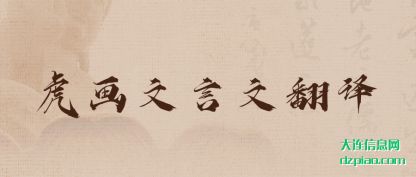 虎画文言文翻译
大连信息网
dzpiao.com